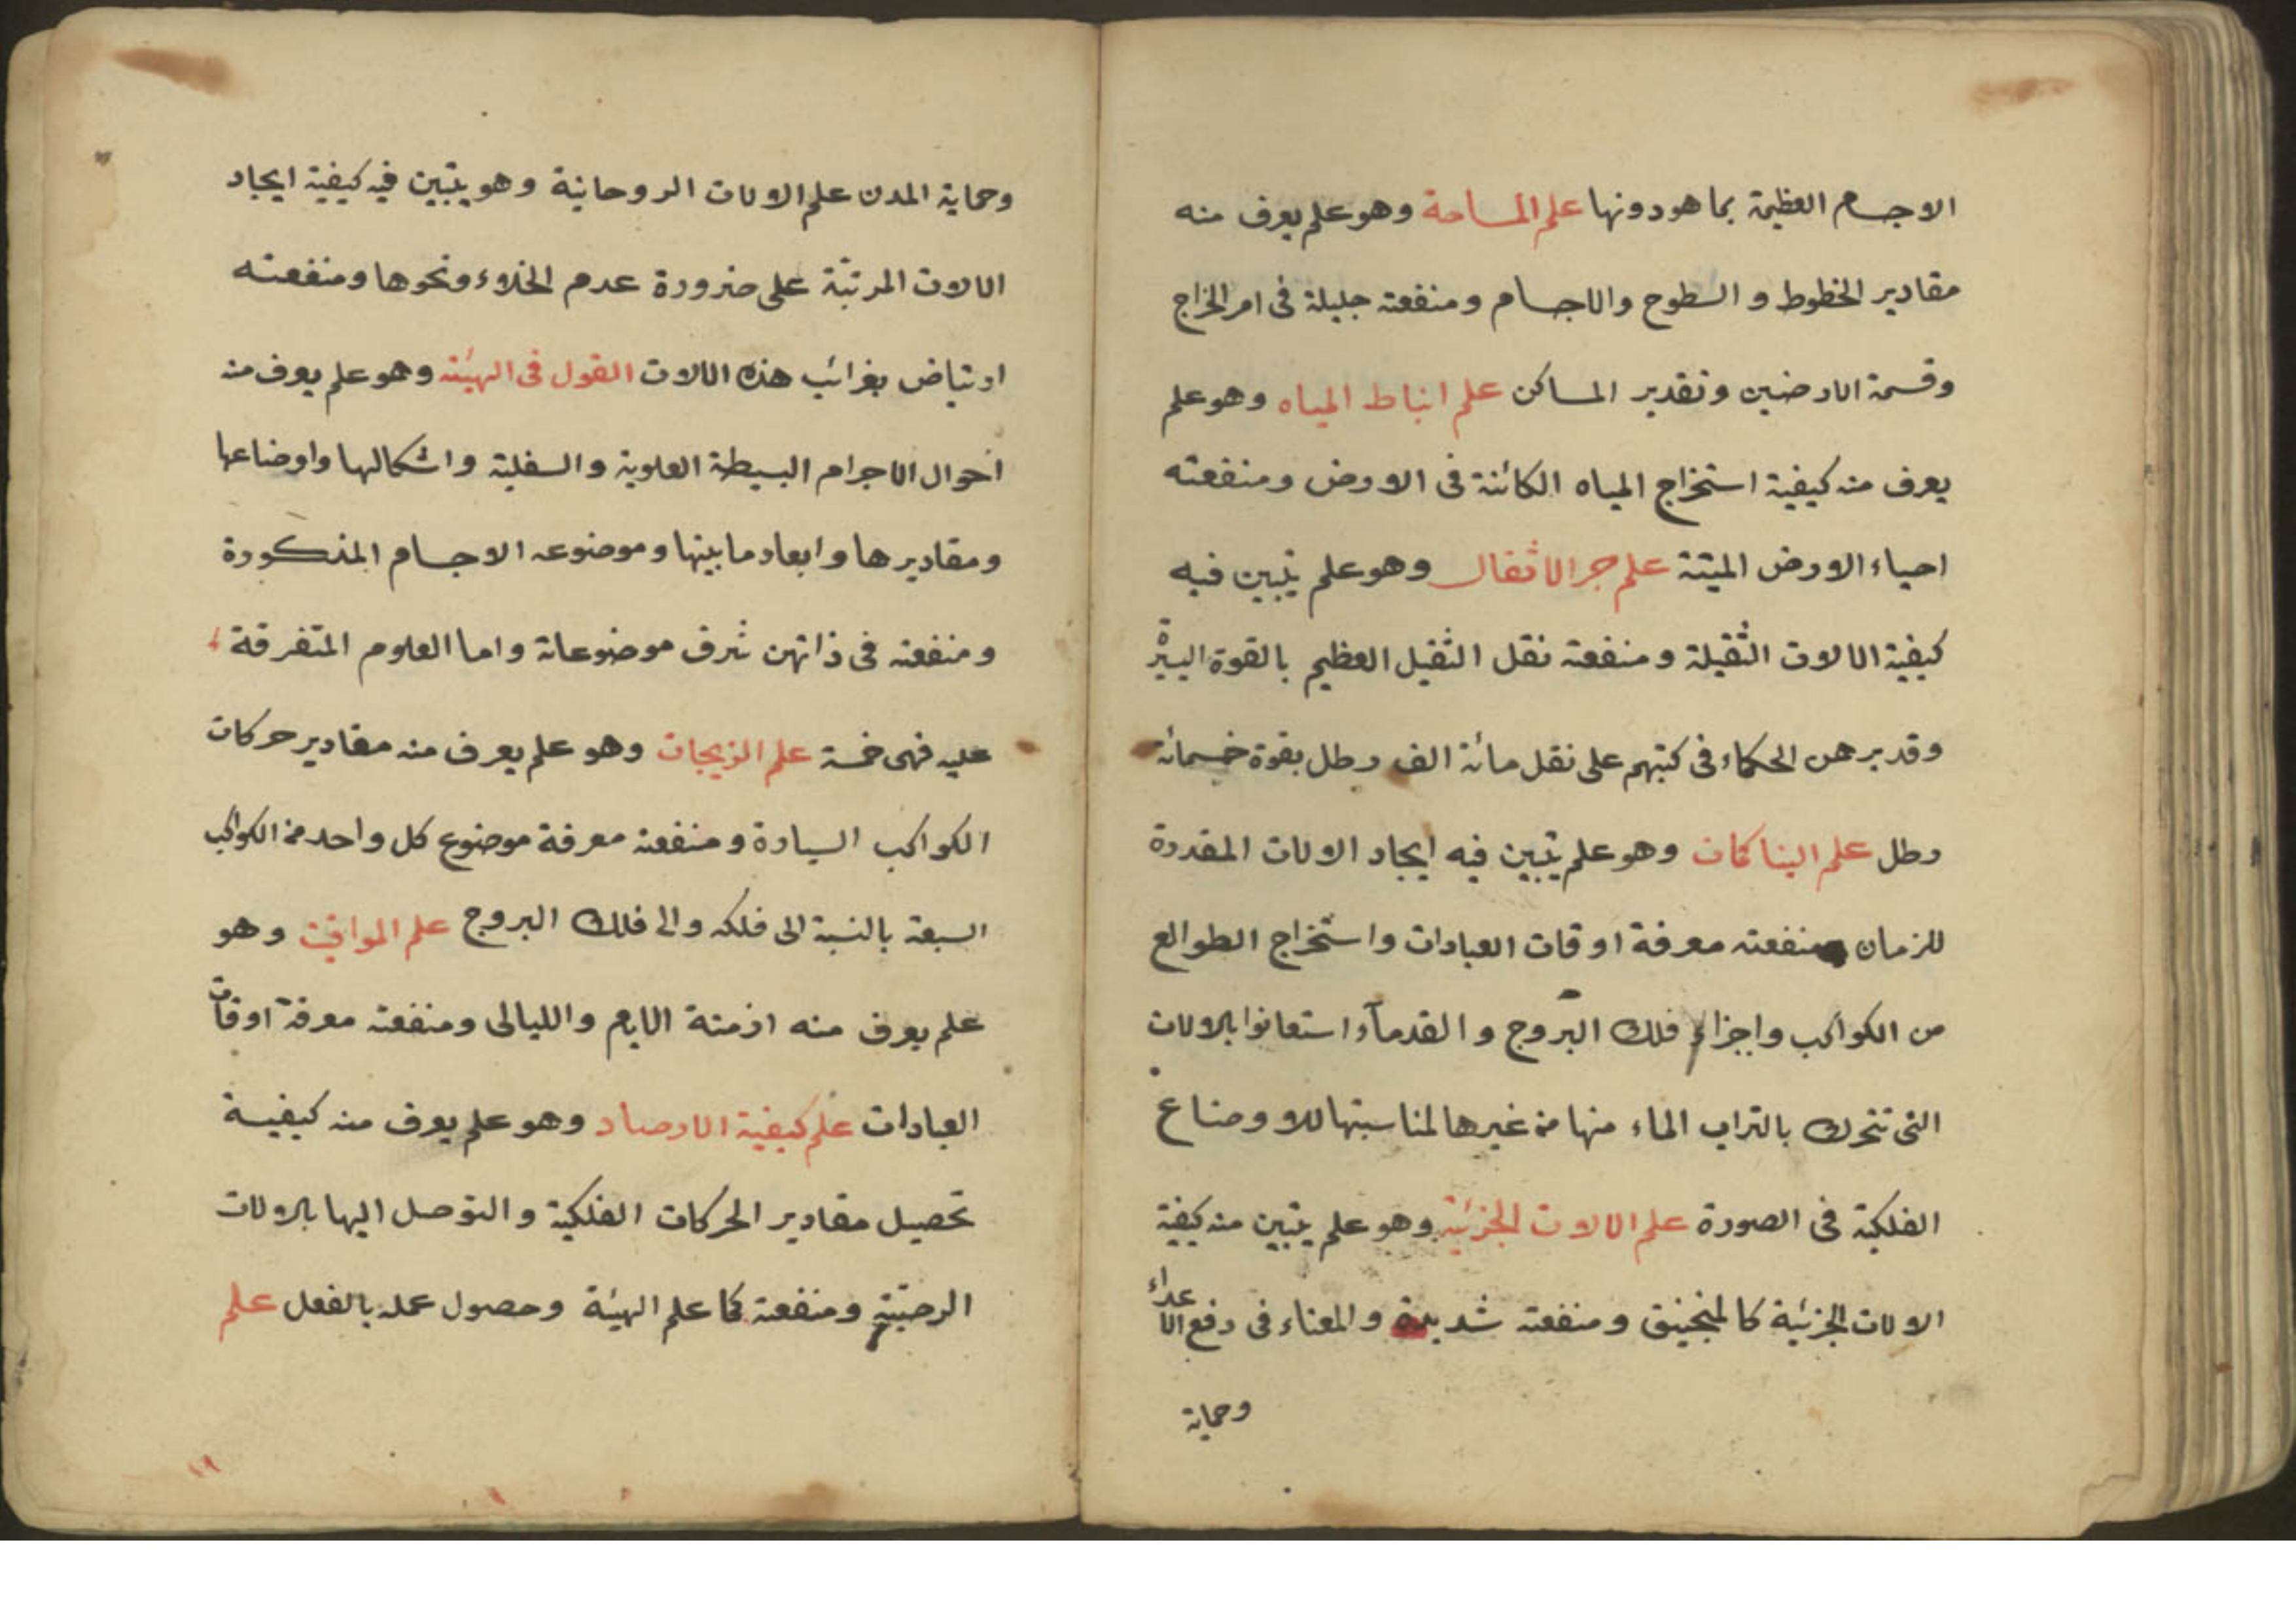 الاجسام العظيمة بما هو دونها علم المساحة وهو علم يعرف منه
مقادير الخطوط و السطوح والاجسام ومنفعته جليلة فى امر الخراج
وقسمة الارضين وتقدير المساكن علم انباط المياه وهو علم
يعرف منه كيفية استخراج المياه الكائنة فى الارض ومنفعته
احياء الارض الميتة علم جر الاثقال وهو علم يتبين فيه
كيفية الالات الثقيلة ومنفعته نقل الثقيل العظيم بالقوة اليسيرة
وقد برهن الحكماء فى كتبهم على نقل مائة الف رطل بقوة خمسمائة
رطل علم البناكات وهو علم يتبين فيه ايجاد الالات المقدرة
للزمان ومنفعته معرفة اوقات العبادات واستخراج الطوالع
من الكواكب واجزاء فلك البروج و القدمآء استعانوا بالالات
التى تتحرك بالتراب الماء منها من غيرها لمناسبتها للاوضاع
الفلكية فى الصورة علم الالات الجزئية وهو علم يتبين منه كيفية
الالات الجزئية كالمنجنيق ومنفعته شديدة والمعناء فى دفع الاعداء
وحماية
وحماية المدن علم الالات الروحانية وهو يتبين فيه كيفية ايجاد
الالات المرتبة على ضرورة عدم الخلاء ونحوها ومنفعته
ارتياض بغرائب هذه الالات القول فى الهيئة وهو علم يعرف منه
احوال الاجرام البسيطة العلوية والسفلية واشكالها واوضاعها
ومقاديرها وابعاد ما بينها وموضوعه الاجسام المذكورة
ومنفعته فى ذاتهن شرف موضوعاته واما العلوم المتفرقة
عليه فهى خمسة علم الزيجات وهو علم يعرف منه مقادير حركات
الكواكب السيارة ومنفعته معرفة موضوع كل واحد من الكواكب
السبعة بالنسبة الى فلكه والى فلك البروج علم المواقيت وهو
علم يعرف منه ازمنة الايام والليالى ومنفعته معرفة اوقات
العبادات علم كيفية الارصاد وهو علم يعرف منه كيفية
تحصيل مقادير الحركات الفلكية والتوصل اليها بالالات
الرصيتية ومنفعته كما علم الهيئة وحصول عمله بالفعل علم
١٩